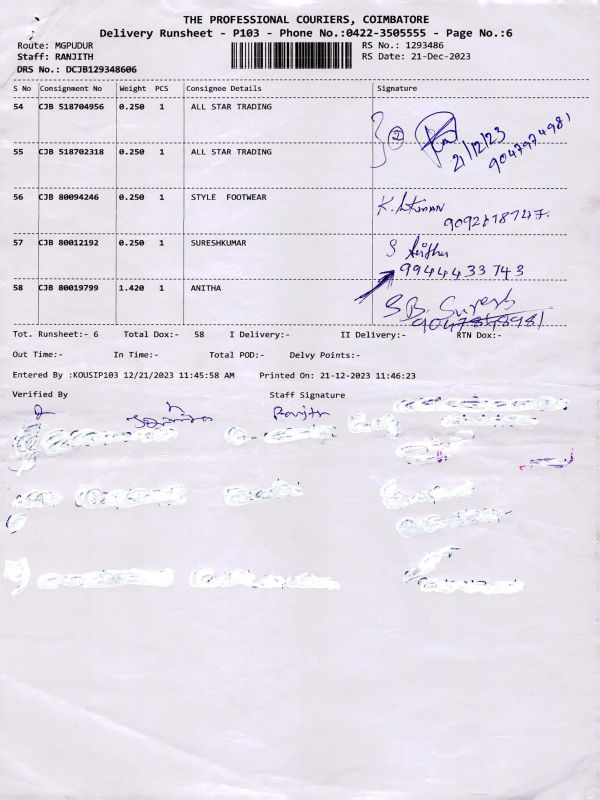 THE PROFESSIONAL COURIERS, COIMBATORE
Delivery Runsheet - P103 - Phone No.:0422-3505555 - Page No.:6
Route: MGPUDUR RS No.: 1293486
Staff: RANJITH RS Date: 21-Dec-2023
DRS No.: DCJB129348606
S No Consignment No Weight PCS Consignee Details Signature
54 CJB 518704956 0.250 1 ALL STAR TRADING
2 21/12/23 9047974981
55 CJB 518702318 0.250 1 ALL STAR TRADING
56 CJB 80094246 0.250 1 STYLE FOOTWEAR
57 CJB 80012192 0.250 1 SURESHKUMAR S
9944433743
58 CJB 80019799 1.420 1 ANITHA S.B. Suresh
Tot. Runsheet:- 6 Total Dox:- 58 I Delivery:- II Delivery:- RTN Dox:-
Out Time:- In Time:- Total POD:- Delvy Points:-
Entered By :KOUSIP103 12/21/2023 11:45:58 AM Printed On: 21-12-2023 11:46:23
Verified By Staff Signature
Ranjith